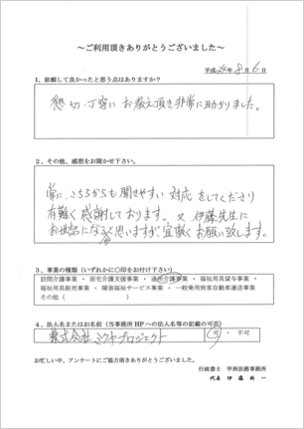 ～ご利用頂きありがとうございました～
平成24年8月6日
1、依頼して良かったと思う点はありますか？
懇切、丁寧に お教え頂き非常に助かりました。
2、その他、感想をお聞かせ下さい。
常に、こちらからも聞きやすい 対応 をしてくださり
有難く感謝しております。又 伊藤先生に
お世話になると思いますが宜敷くお願い致します。
3、事業の種類（いずれかに〇印をお付け下さい）
訪問介護事業 ・ 居宅介護支援事業 ・ 通所介護事業 ・ 福祉用具貸与事業 ・
福祉用具販売事業 ・ 障害福祉サービス事業 ・ 一般乗用旅客自動車運送事業
その他（　　　　　）
4、法人名またはお名前（当事務所 HP への法人名等の記載の可否）
株式会社 ミクヤプロジェクト　可 ・ 不可
お忙しい中、アンケートにご協力頂きありがとうございました。
行政書士 甲西法務事務所
代表 伊藤 裕一